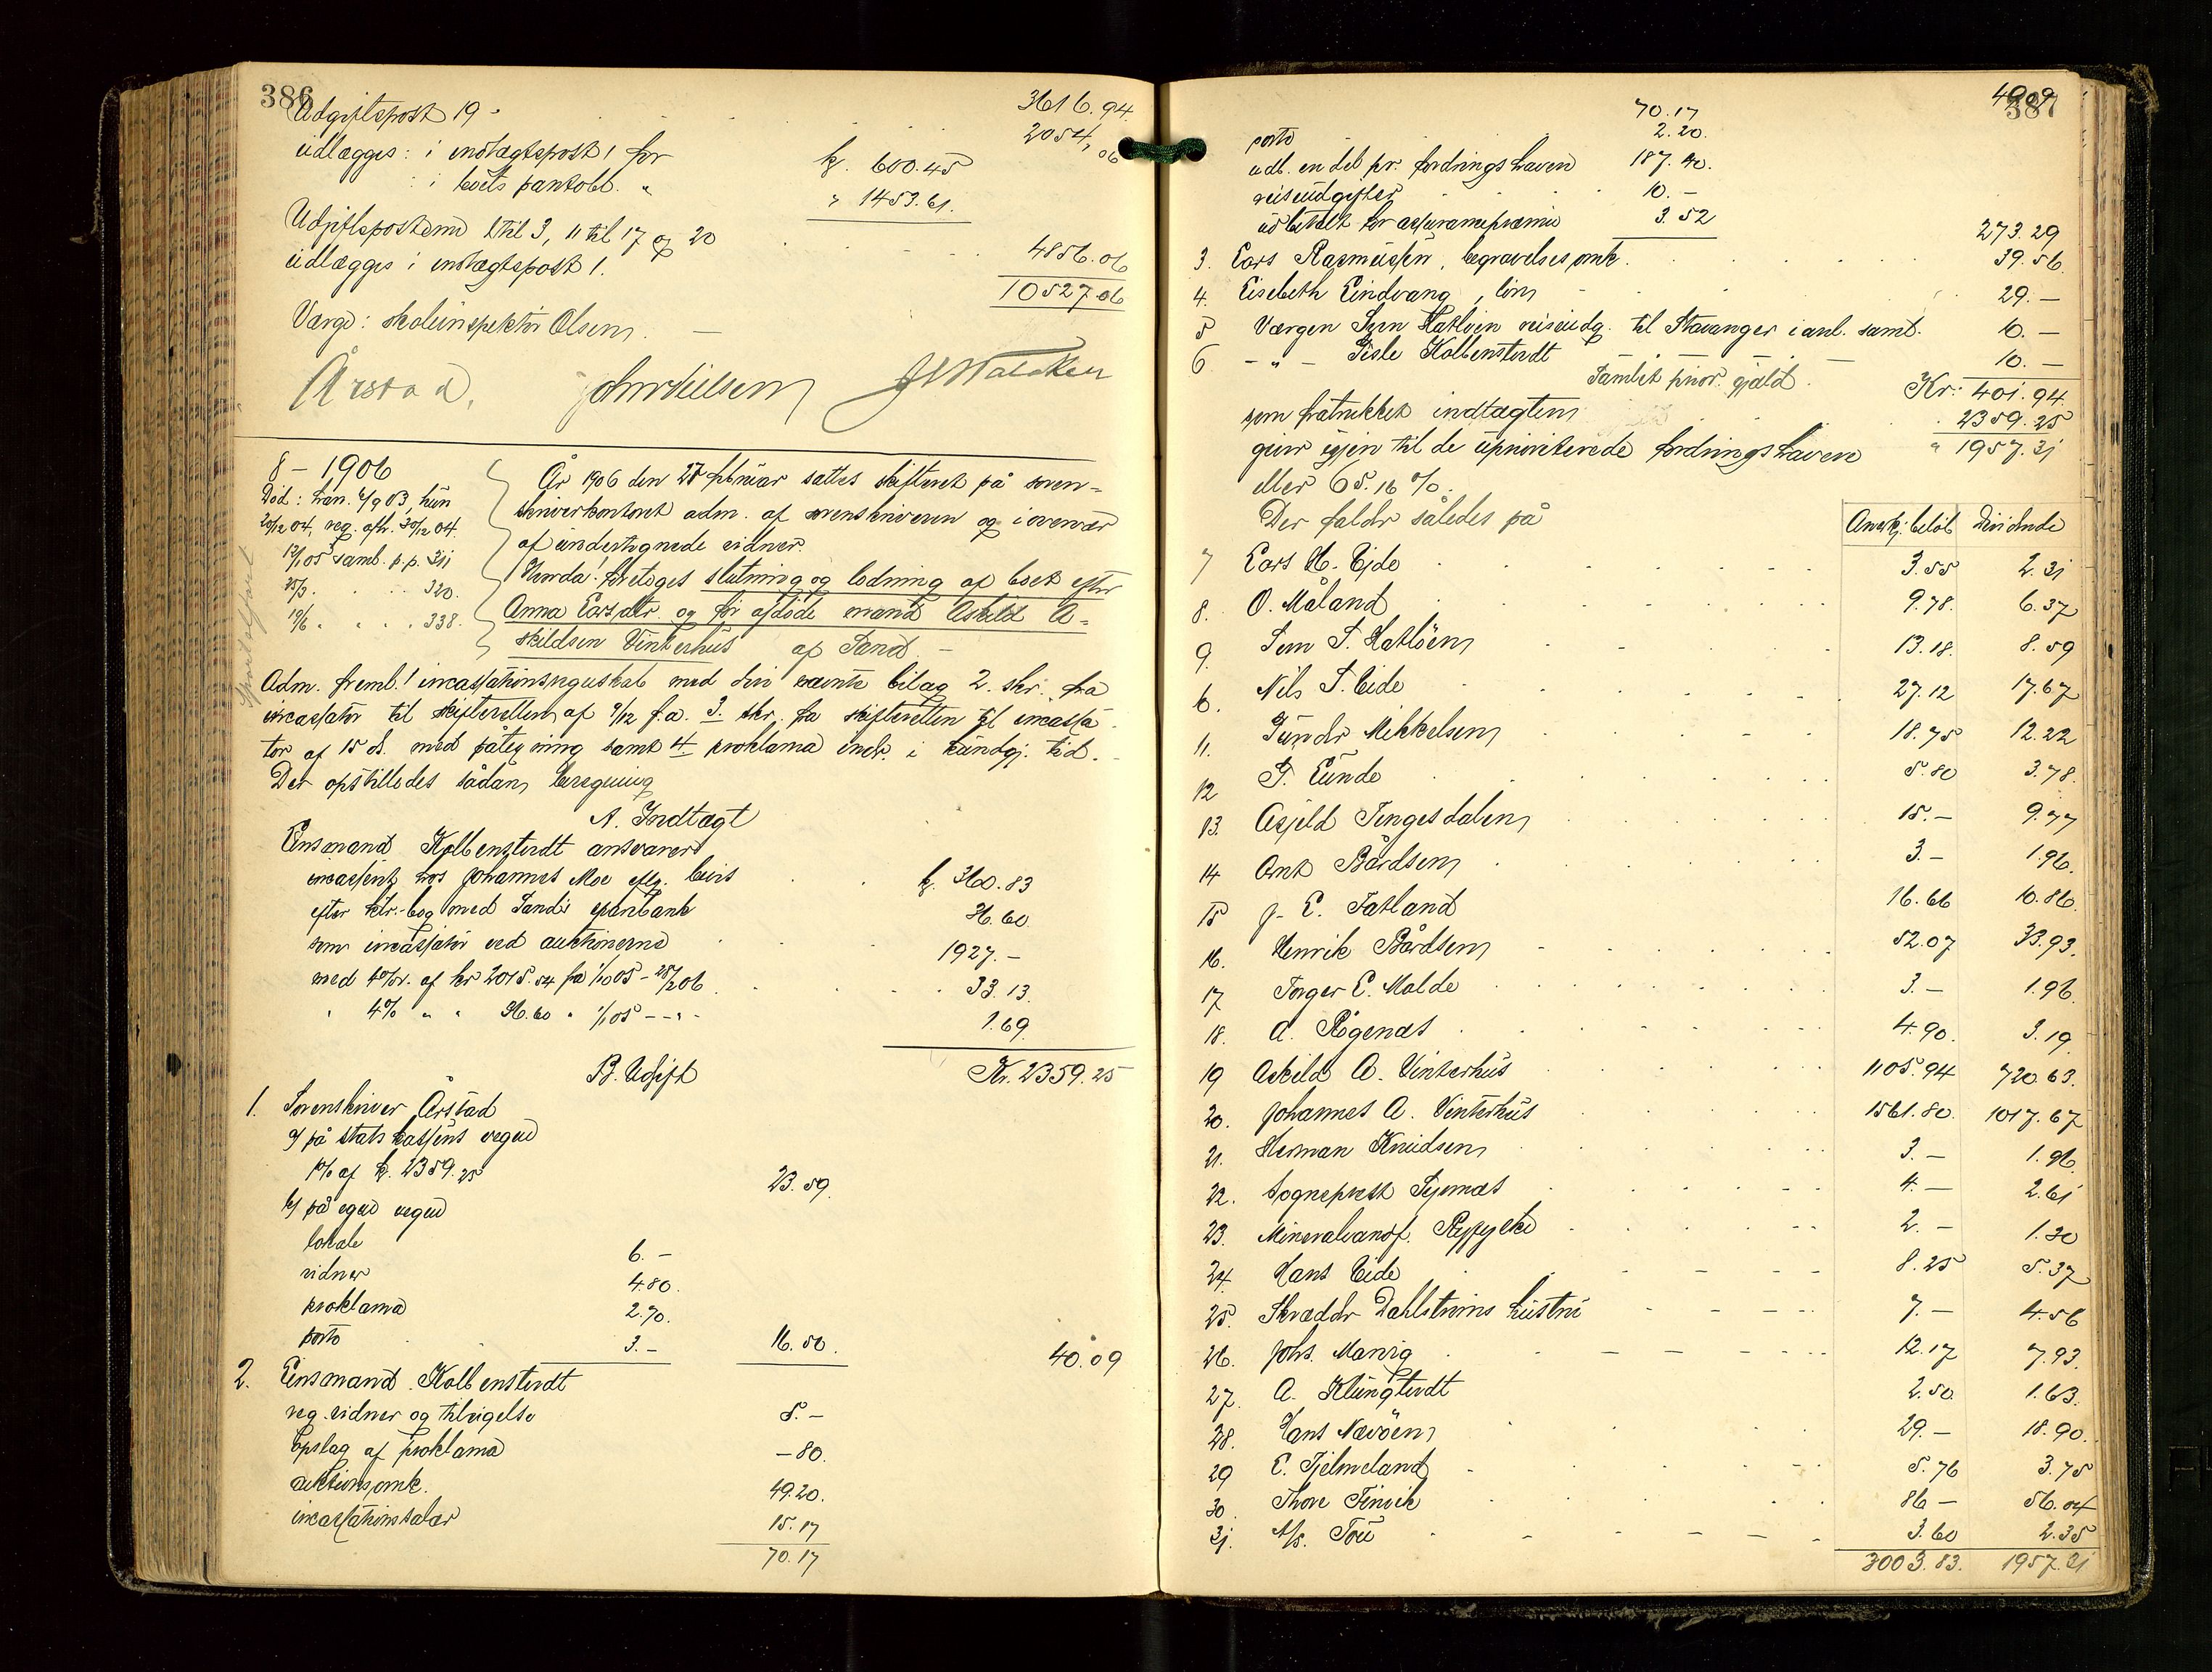 386
Udgiftspost 19 - 3616.94
udlægges: i indtægtspost 1 for k. 600.45 2054,06
: i boets pantobl. " " 1453.61.
Udgiftsposterne 1 til 3, 11 til 17 og 20
udlægges i indtægtspost 1. 4856.06
10527.06
Værge: skoleinspektør Olsen. —
Årstad.
8 – 1906
Død: han. 4/9 03, hun
20/12 04, reg. afh. 30/12 04.
12/1 05 samb. p.p. 311
25/3 . . . 320.
19/6 . . . . 338.
År 1906 den 27 februar sattes skifteret på soren-
skriverkontoret adm. af sorenskriveren og i overvær
af undertegnede vidner.
Hvorda! foretoges slutning og lodning af boet efter
Anna Larsdtr. og før afdøde mand Askild A-
skildsen Vinterhus af Sand. –
Adm. freml. 1 incassationsregnskab med din nævnte bilag 2. skr. fra
incassator til skifteretten af 9/12 f.a. 3. skr. fra skifteretten til incassa-
tor af 15 ds. med påtegning samt 4 proklama indr. i kundgj. tid.
Der opstilledes sådan beregning
A. Indtægt
Lensmand Kolbenstvedt ansvarer
incassent hos Johannes Moe k. 360.83
efter ktr.-bog med Sands sparebank 36.60
som incassator ved auktionerne 1927.–
med 4% r. af kr 2015.54 fra 1/10 05 – 28/2 06 33.13.
" 4% " " 36.60 " 1/1 05 – – " – 1.69
Kr. 2359.25
B. Udgift
1. Sorenskriver Årstad
a/ på statskassens vegne
1% af k. 2359.25 23.59
b/ på egne vegne
lokale 6.–
vidner 4.80.
proklama 2.70.
porto 3.– 16.50. 40.09
2. Lensmand Kolbenstvedt
reg. vidner og tilsigelse 5.–
opslag af proklama –80.
auktionsomk. 49.20.
incassationssalær 15.17
70.17
387
40.09
70.17
porto 2.20.
udl. en del pr. fordringshaven 187.40.
reiseudgifter 10.–
udbetalt for assurancepræmie 3.52 273.29
3. Lars Rasmussen, begravelsesomk. 39.56
4. Lisebeth Lindvang, løn 29.–
5 Værgen Sven Hatløen reiseudg. til Stavanger i anl. samt. 10.–
6 – " – Gisle Kolbenstvedt 10.–
Samlet prior. gjæld Kr: 401.94
som fratrukket indtægten 2359.25
giver igjen til de uprioriterede fordringshavere " 1957.31
eller 65.16 %.
Der falder således på Anerkj. beløb Dividende
7 Lars H. Eide 3.55 2.31
8. O. Måland 9.78. 6.37
9. Sven S. Hatløen 13.18. 8.59
6. Nils S. Eide 27.12 17.67
11. Gunder Mikkelsen 18.75 12.22
12 T. Lunde 5.80 3.78.
13. Asjeld Tengesdalen 15.– 9.77
14 Ant Bårdsen 3.– 1.96.
15 J. E. Tatland 16.66 10.86
16. Henrik Bårdsen 52.07 33.93.
17 Torger E. Molde 3.– 1.96.
18. A. Røgenæs 4.90. 3.19
19 Askild A. Vinterhus 1105.94 720.63.
20. Johannes A. Vinterhus 1561.80. 1017.67
21. Herman Knudsen 3.– 1.96
22. Sogneprest Tyrnæs 4.– 2.61
23. Mineralvandf. 2.– 1.30
24. Hans Eide 8.25 5.37
25. Skrædder Dahlstrøms hustru 7.– 4.56
26. Johs. Maning 12.17 7.93.
27. A. Klungtvedt 2.50 1.63.
28. Hans Nævøen 29.– 18.90.
29 E. Tjelmeland 5.76 3.75
30. Thore Finvik 86– 56.04
31. A/s. Tou 3.60 2.35
3003.83. 1957.31